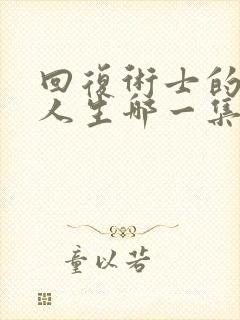 回復術士的
人生哪一集
童以若